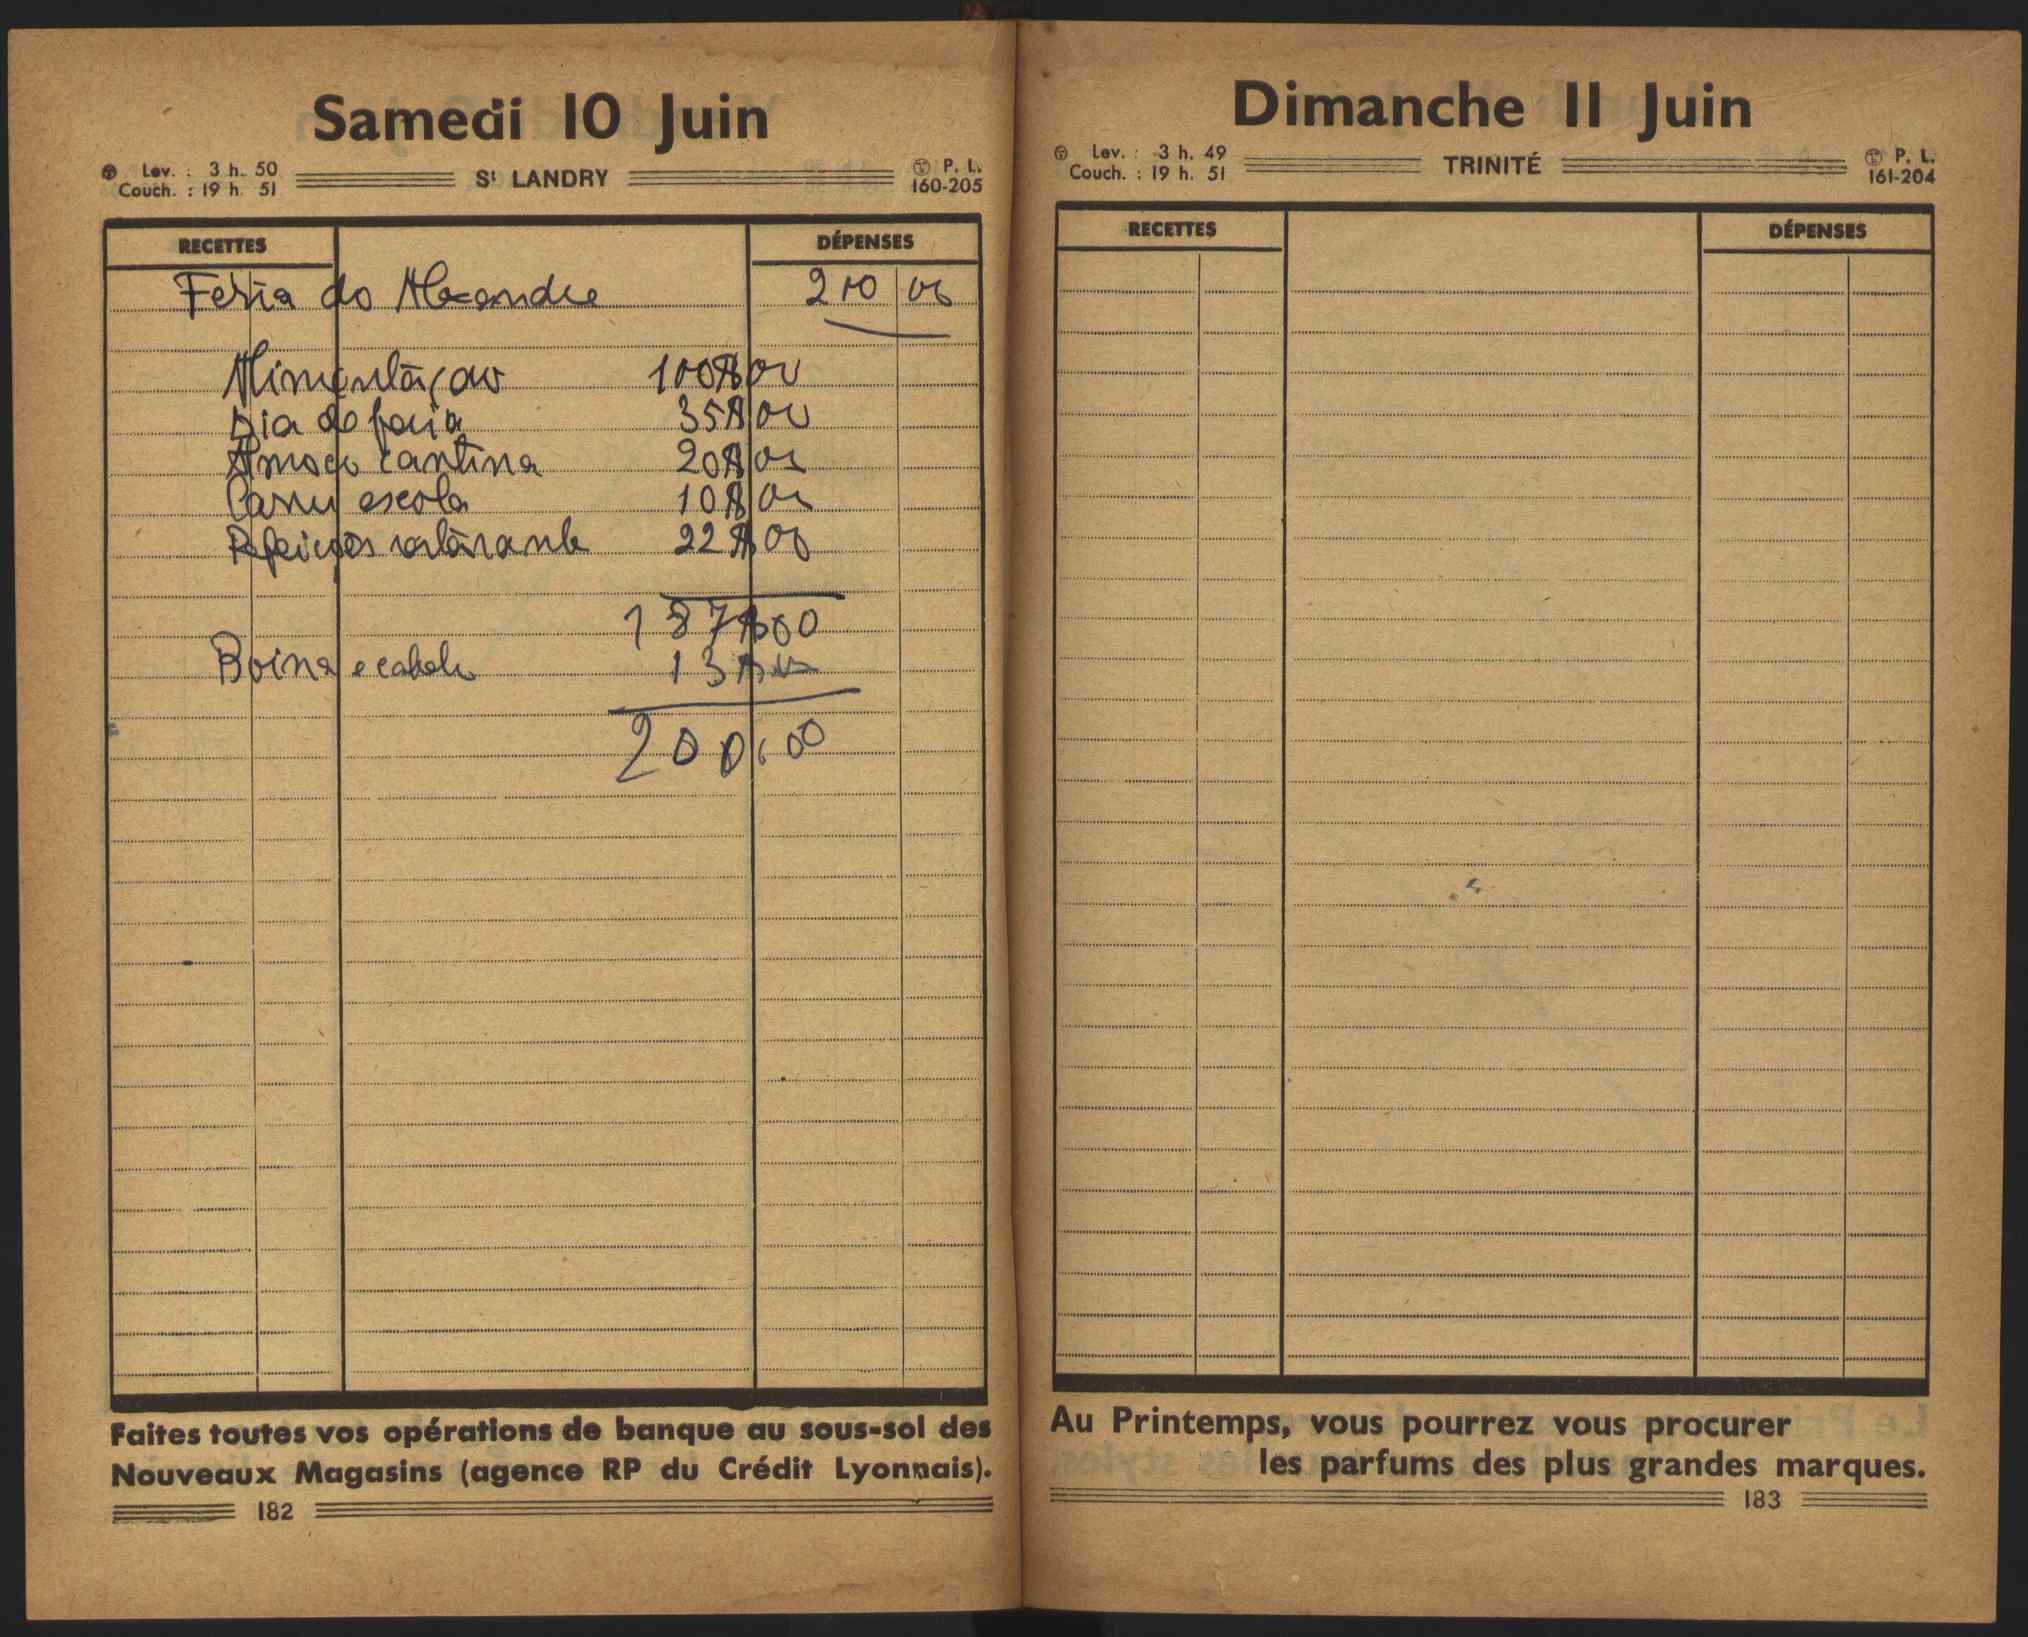 Samedi 10 Juin
Lev. : 3 h. 50
Couch. : 19 h. 51
St LANDRY
P. L.
160-205
RECETTES DÉPENSES
Feria do Alexandre 200 00
Alimentação 100$00
Dia de feria 35$00
Almoço cantina 20$00
Carro escola 10$00
Refeições restaurante 22$00
187$00
Boina e cabelo 13$00
200,00
Faites toutes vos opérations de banque au sous-sol des
Nouveaux Magasins (agence RP du Crédit Lyonnais).
182
Dimanche 11 Juin
Lev. : 3 h. 49
Couch. : 19 h. 51
TRINITÉ
P. L.
161-204
RECETTES DÉPENSES
Au Printemps, vous pourrez vous procurer
les parfums des plus grandes marques.
183